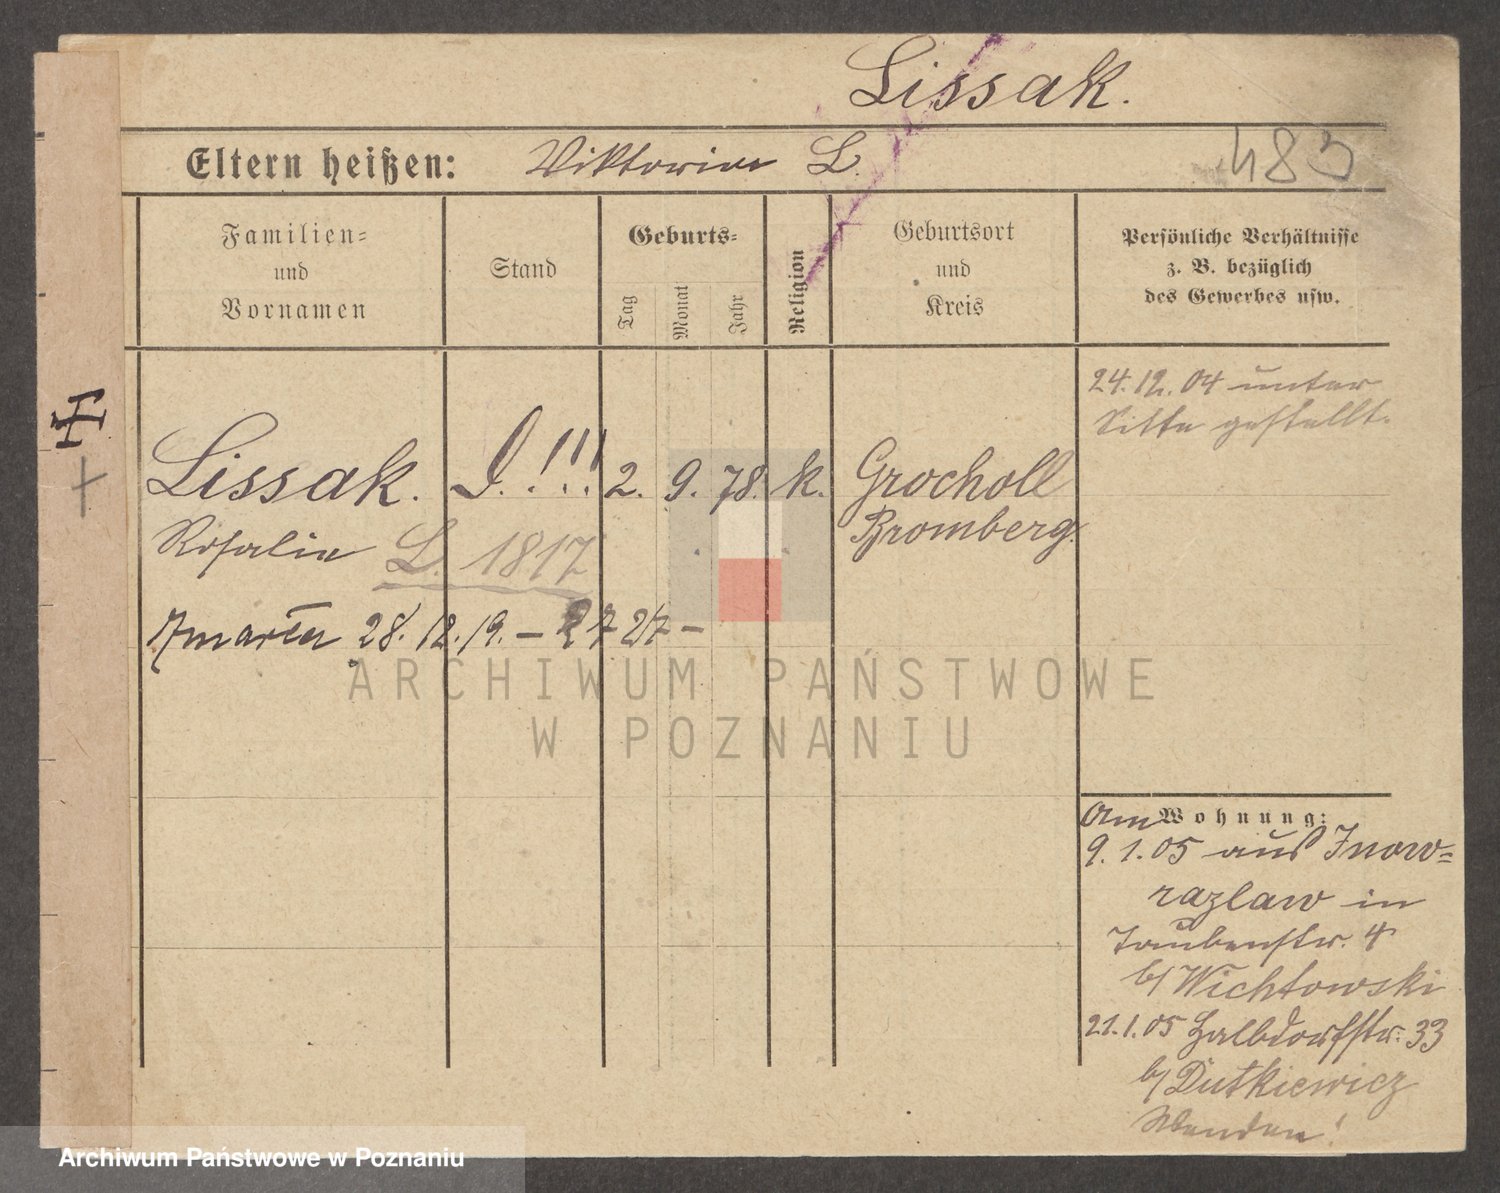 Lissak.
Eltern heißen: Viktoria L.
483
Familien-
und
Vornamen
Stand
Geburts-
Tag
Monat
Jahr
Religion
Geburtsort
und
Kreis
Persönliche Verhältnisse
z. B. bezüglich
des Gewerbes usw.
24.12.04 unter
Sitte gestellt.
Lissak. !!! 2. 9. 78. k. Grocholl
Rosalie L. 1817 Bromberg.
28.12.19. – 27 27 –
Am Wohnung:
9.1.05 aus Inow=
razlaw in
Taubenstr. 4
b/ Wichtowski
21.1.05 Halbdorfstr. 33
b/ Dutkiewicz
Wenden!
ARCHIWUM PAŃSTWOWE
W POZNANIU
Archiwum Państwowe w Poznaniu